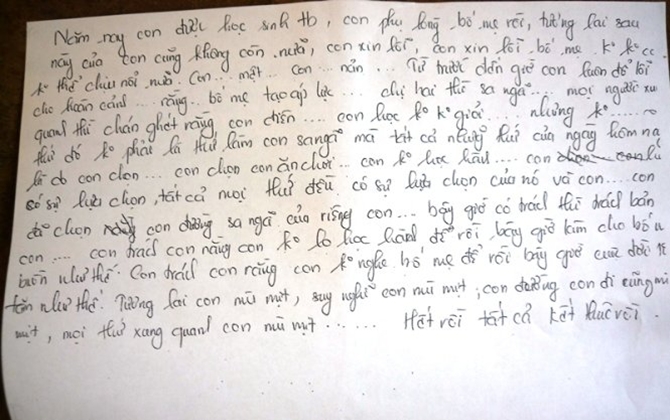 Năm nay con được học sinh tb, con phụ lòng bố mẹ rồi, tương lai sau
này của con cũng không còn nữa, con xin lỗi, con xin lỗi bố mẹ k
k thể chịu nổi nữa. Con... mệt... con... nản... Từ trước đến giờ con luôn đổ lỗi
cho hoàn cảnh... rằng... bố mẹ tạo áp lực... chị hai thì sa ngã... mọi người xu
quanh thì chán ghét rằng con điên.... con học k k giỏi.... nhưng k
thứ đó k phải là thứ làm con sa ngã mà tất cả những thứ của ngày hôm na
là do con chọn... con chọn con ăn chơi... con k học hành.... con
có sự lựa chọn, tất cả mọi thứ đều có sự lựa chọn của nó và con.... con
đã chọn con đường sa ngã của riêng con... bây giờ có trách thì trách bản
con.... con trách con rằng con k lo học hành để rồi bây giờ làm cho bố m
buồn như thế. Con trách con rằng con k nghe bố mẹ để rồi bây giờ cuộc đời
tàn như thế. Tương lai con mù mịt, suy nghĩ con mù mịt, con đường con đi cũng mù
mịt, mọi thứ xung quanh con mù mịt....... Hết rồi tất cả kết thúc rồi.